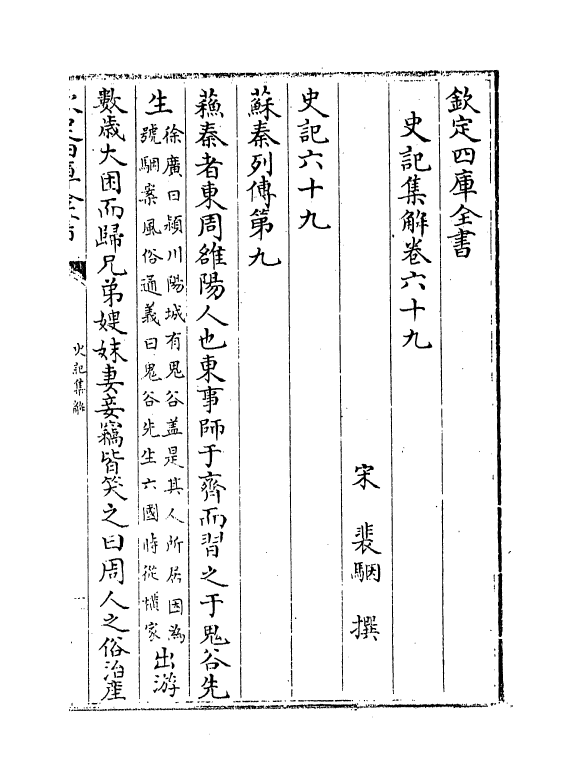 欽定四庫全書
史記集解卷六十九
宋 裴駰 撰
史記六十九
蘇秦列傳第九
蘓秦者東周雒陽人也東事師于齊而習之于鬼谷先
生 徐廣曰潁川陽城有鬼谷蓋是其人所居因為
號駰案風俗通義曰鬼谷先生六國時從横家 出游
數歲大困而歸兄弟嫂妹妻妾竊皆笑之曰周人之俗治產
史記集解